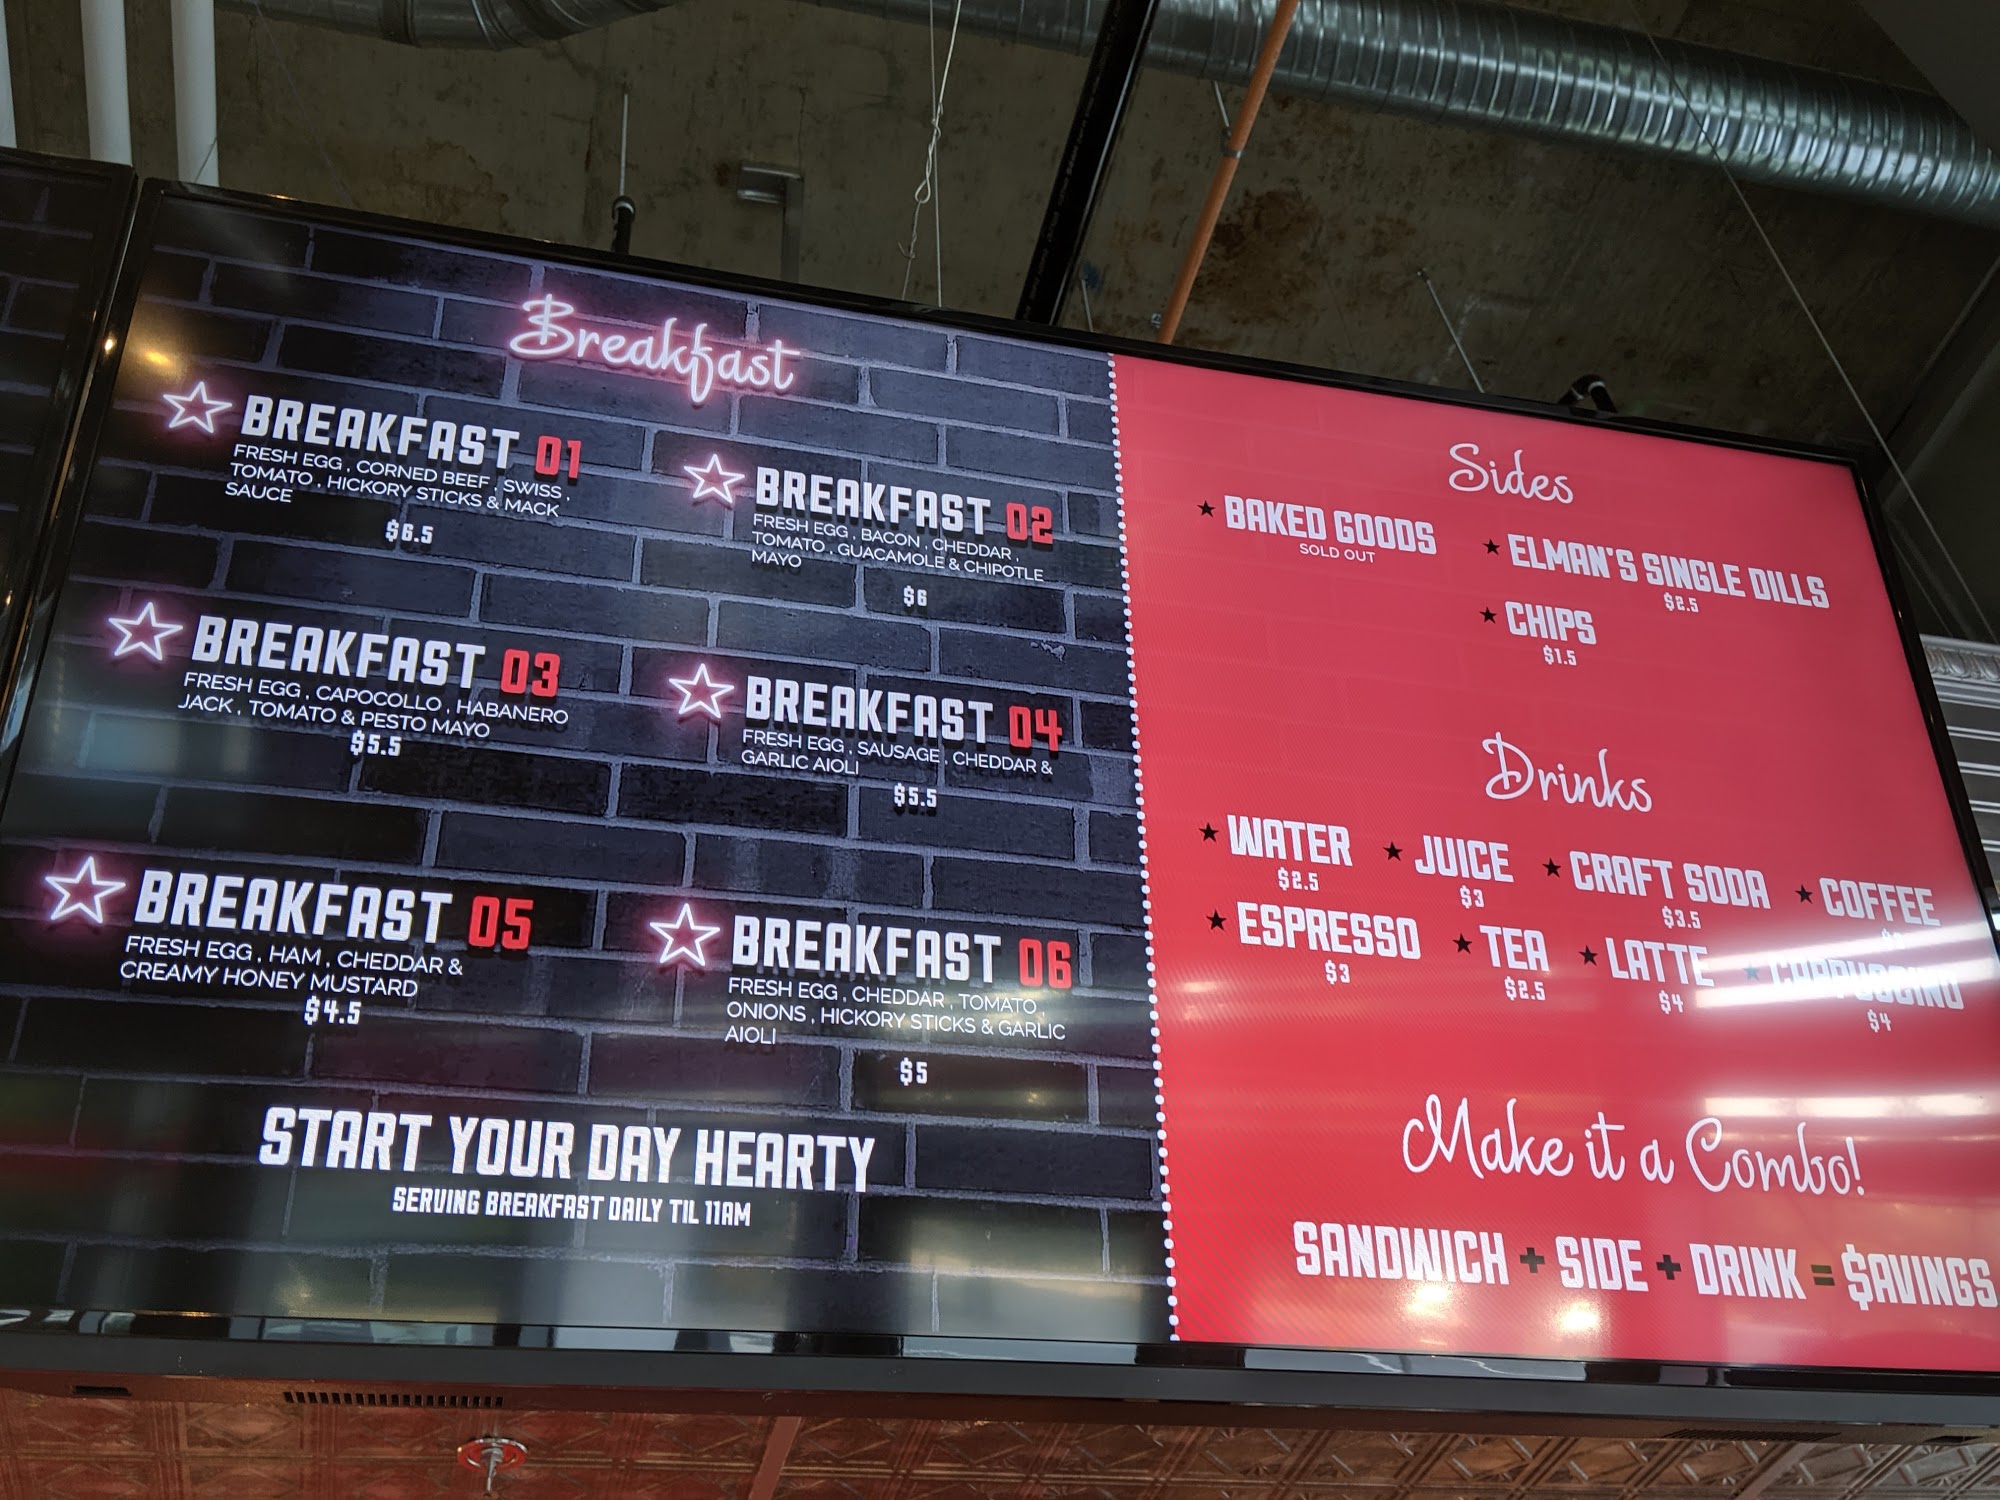 Breakfast
BREAKFAST 01
FRESH EGG , CORNED BEEF , SWISS ,
TOMATO , HICKORY STICKS & MACK
SAUCE
$6.5
BREAKFAST 02
FRESH EGG , BACON , CHEDDAR ,
TOMATO , GUACAMOLE & CHIPOTLE
MAYO
$6
BREAKFAST 03
FRESH EGG , CAPOCOLLO , HABANERO
JACK , TOMATO & PESTO MAYO
$5.5
BREAKFAST 04
FRESH EGG , SAUSAGE , CHEDDAR &
GARLIC AIOLI
$5.5
BREAKFAST 05
FRESH EGG , HAM , CHEDDAR &
CREAMY HONEY MUSTARD
$4.5
BREAKFAST 06
FRESH EGG , CHEDDAR , TOMATO ,
ONIONS , HICKORY STICKS & GARLIC
AIOLI
$5
START YOUR DAY HEARTY
SERVING BREAKFAST DAILY TIL 11AM
Sides
BAKED GOODS
SOLD OUT
ELMAN'S SINGLE DILLS
$2.5
CHIPS
$1.5
Drinks
WATER
$2.5
JUICE
$3
CRAFT SODA
$3.5
COFFEE
ESPRESSO
$3
TEA
$2.5
LATTE
$4
CAPPUCCINO
$4
Make it a Combo!
SANDWICH + SIDE + DRINK = $AVINGS